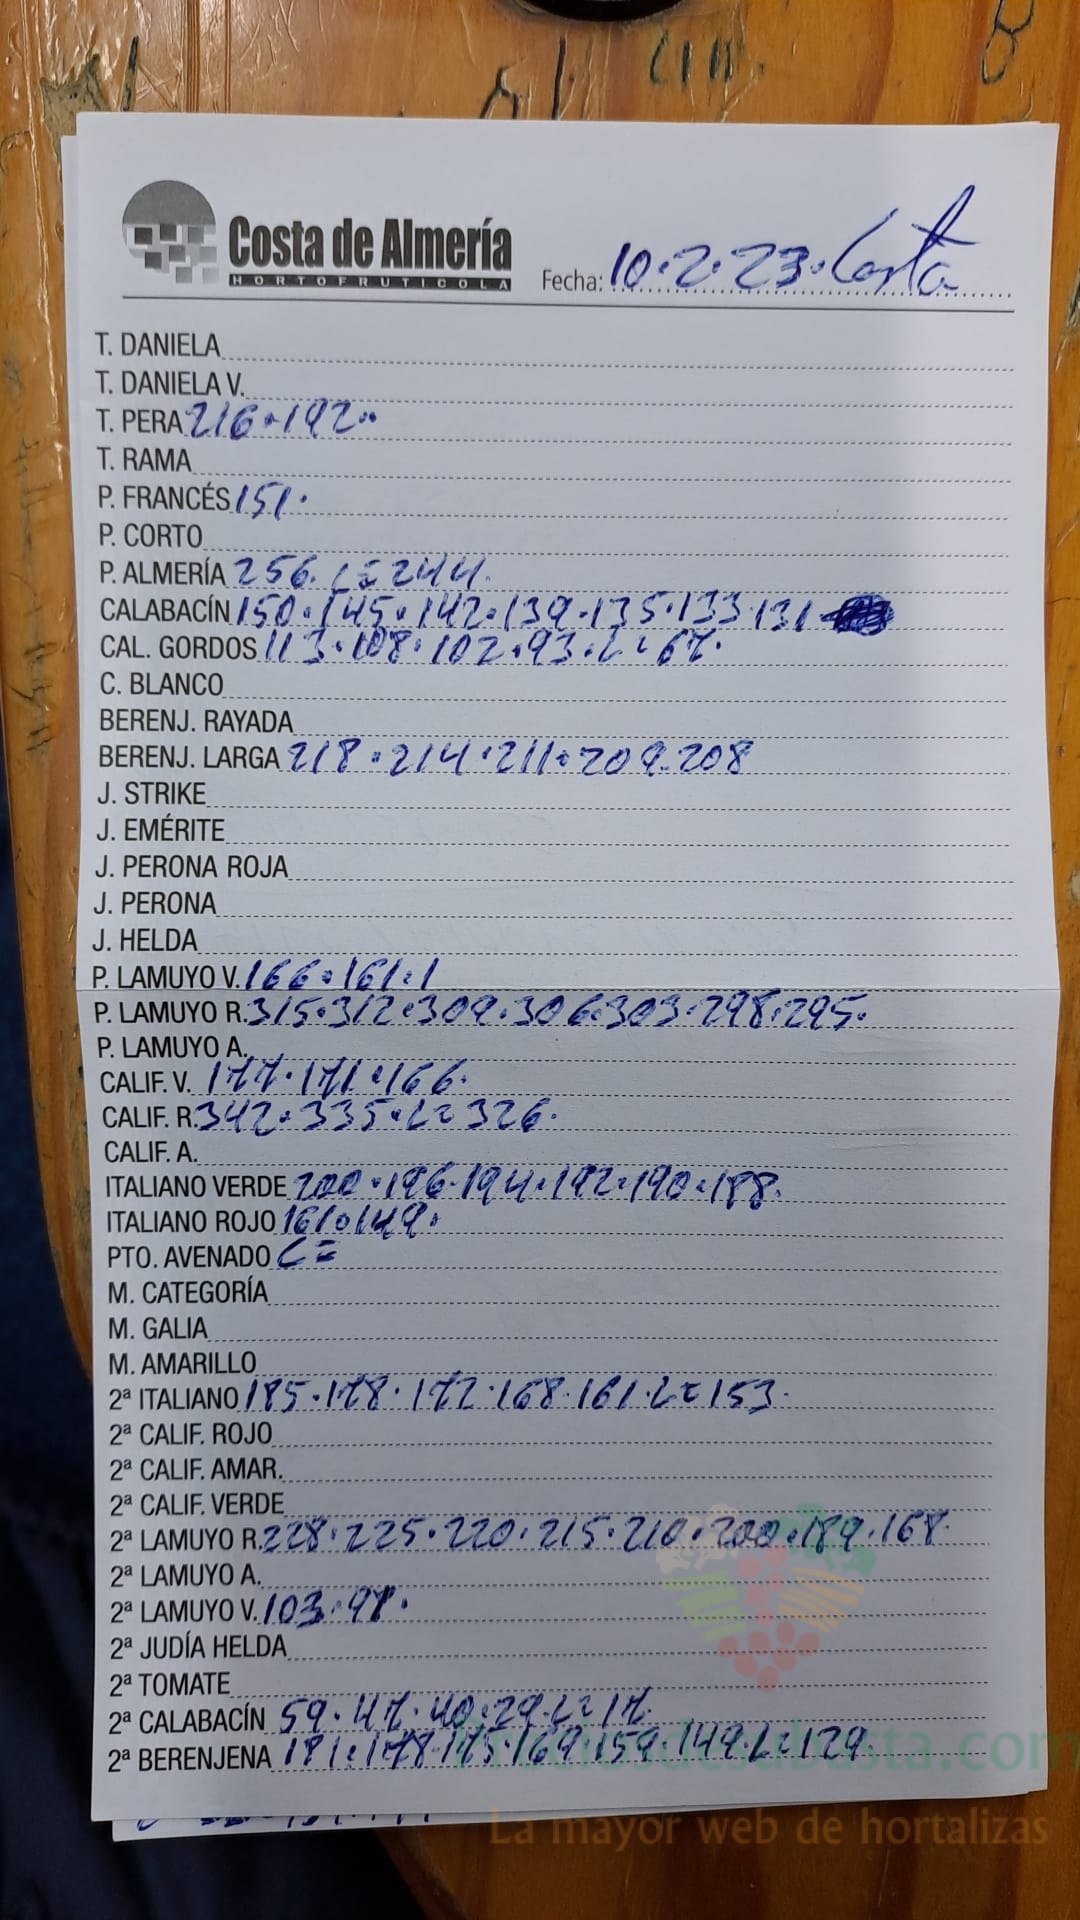 Costa de Almería
HORTOFRUTICOLA
Fecha: 10.2.23. Costa
T. DANIELA
T. DANIELA V.
T. PERA 216.192..
T. RAMA
P. FRANCÉS 151.
P. CORTO
P. ALMERÍA 256. L= 244.
CALABACÍN 150.145.142.139.135.133.131
CAL. GORDOS 113.108.102.93.L=67.
C. BLANCO
BERENJ. RAYADA
BERENJ. LARGA 218.214.211.209.208
J. STRIKE
J. EMÉRITE
J. PERONA ROJA
J. PERONA
J. HELDA
P. LAMUYO V. 166.161.1
P. LAMUYO R. 315.312.309.306.303.298.295.
P. LAMUYO A.
CALIF. V. 177.171.166.
CALIF. R. 342.335.L=326.
CALIF. A.
ITALIANO VERDE 200.196.194.192.190.188.
ITALIANO ROJO 161.149.
PTO. AVENADO L=
M. CATEGORÍA
M. GALIA
M. AMARILLO
2ª ITALIANO 185.178.172.168.161.L=153.
2ª CALIF. ROJO
2ª CALIF. AMAR.
2ª CALIF. VERDE
2ª LAMUYO R. 228.225.220.215.210.200.189.168.
2ª LAMUYO A.
2ª LAMUYO V. 103.97.
2ª JUDÍA HELDA
2ª TOMATE
2ª CALABACÍN 59.47.40.29.L=17.
2ª BERENJENA 181.178.175.169.159.149.L=129.
La mayor web de hortalizas